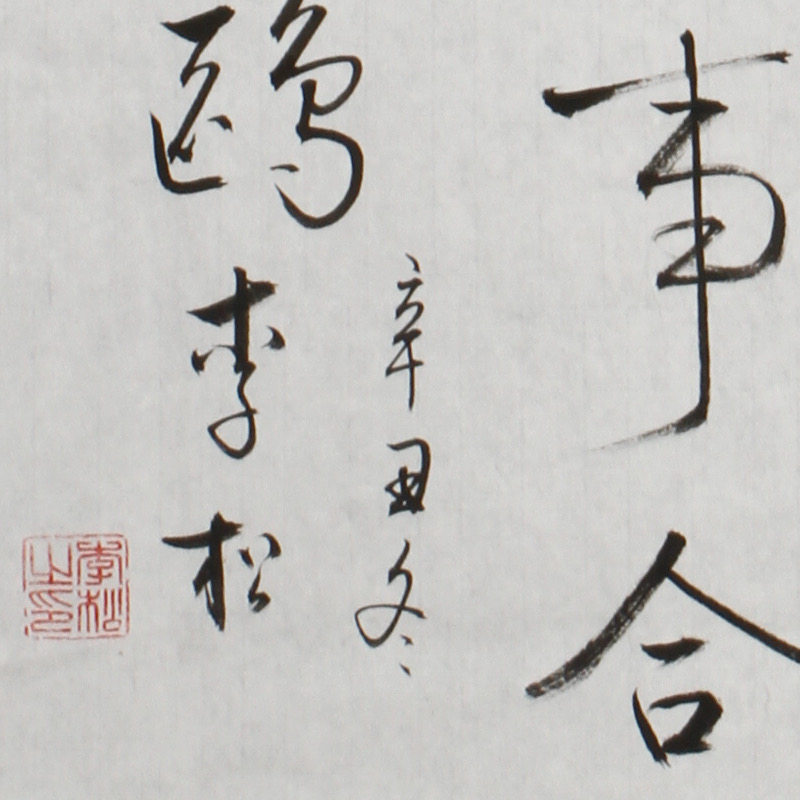 事合
辛丑冬
鷗李松
李松之印